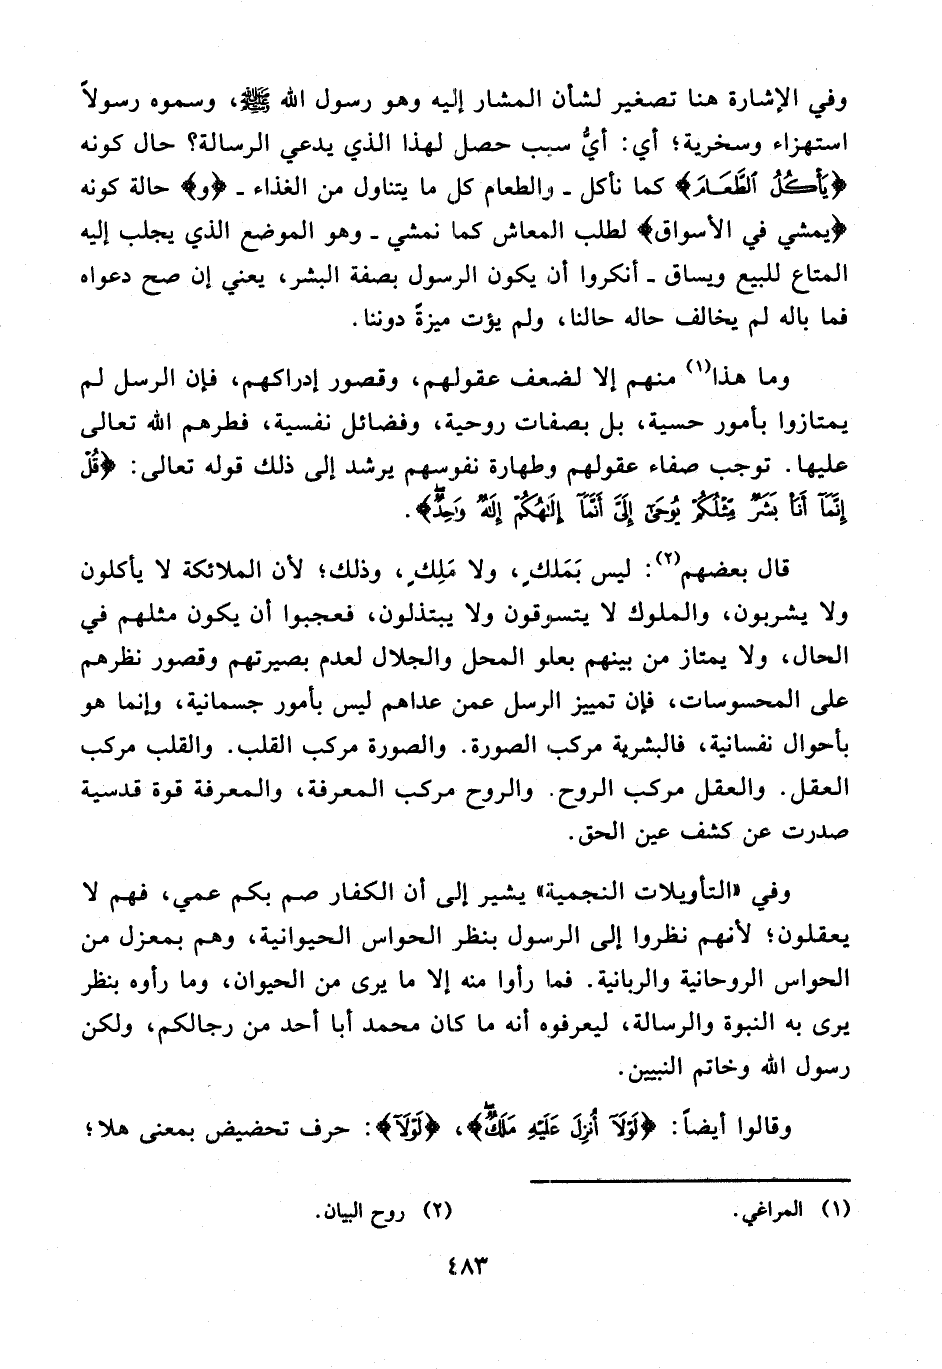 وفي الإشارة هنا تصغير لشأن المشار إليه وهو رسول الله ﷺ، وسموه رسولاً
استهزاء وسخرية؛ أي: أيُّ سبب حصل لهذا الذي يدعي الرسالة؟ حال كونه
﴿يَأْكُلُ ٱلطَّعَامَ﴾ كما نأكل ـ والطعام كل ما يتناول من الغذاء ـ ﴿و﴾ حالة كونه
﴿يمشي في الأسواق﴾ لطلب المعاش كما نمشي ـ وهو الموضع الذي يجلب إليه
المتاع للبيع ويساق ـ أنكروا أن يكون الرسول بصفة البشر، يعني إن صح دعواه
فما باله لم يخالف حاله حالنا، ولم يؤت ميزةً دوننا.
وما هذا(١) منهم إلا لضعف عقولهم، وقصور إدراكهم، فإن الرسل لم
يمتازوا بأمور حسية، بل بصفات روحية، وفضائل نفسية، فطرهم الله تعالى
عليها. توجب صفاء عقولهم وطهارة نفوسهم يرشد إلى ذلك قوله تعالى: ﴿قُلْ
إِنَّمَآ أَنَا۠ بَشَرٌ مِّثْلُكُمْ يُوحَىٰٓ إِلَىَّ أَنَّمَآ إِلَٰهُكُمْ إِلَٰهٌ وَٰحِدٌۖ﴾.
قال بعضهم(٢): ليس بَمَلك، ولا مَلِك، وذلك؛ لأن الملائكة لا يأكلون
ولا يشربون، والملوك لا يتسوقون ولا يبتذلون، فعجبوا أن يكون مثلهم في
الحال، ولا يمتاز من بينهم بعلو المحل والجلال لعدم بصيرتهم وقصور نظرهم
على المحسوسات، فإن تمييز الرسل عمن عداهم ليس بأمور جسمانية، وإنما هو
بأحوال نفسانية، فالبشرية مركب الصورة. والصورة مركب القلب. والقلب مركب
العقل. والعقل مركب الروح. والروح مركب المعرفة، والمعرفة قوة قدسية
صدرت عن كشف عين الحق.
وفي «التأويلات النجمية» يشير إلى أن الكفار صم بكم عمي، فهم لا
يعقلون؛ لأنهم نظروا إلى الرسول بنظر الحواس الحيوانية، وهم بمعزل من
الحواس الروحانية والربانية. فما رأوا منه إلا ما يرى من الحيوان، وما رأوه بنظر
يرى به النبوة والرسالة، ليعرفوه أنه ما كان محمد أبا أحد من رجالكم، ولكن
رسول الله وخاتم النبيين.
وقالوا أيضاً: ﴿لَوْلَآ أُنزِلَ عَلَيْهِ مَلَكٌۖ﴾، ﴿لَوْلَآ﴾: حرف تحضيض بمعنى هلا؛
(١) المراغي. (٢) روح البيان.
٤٨٣